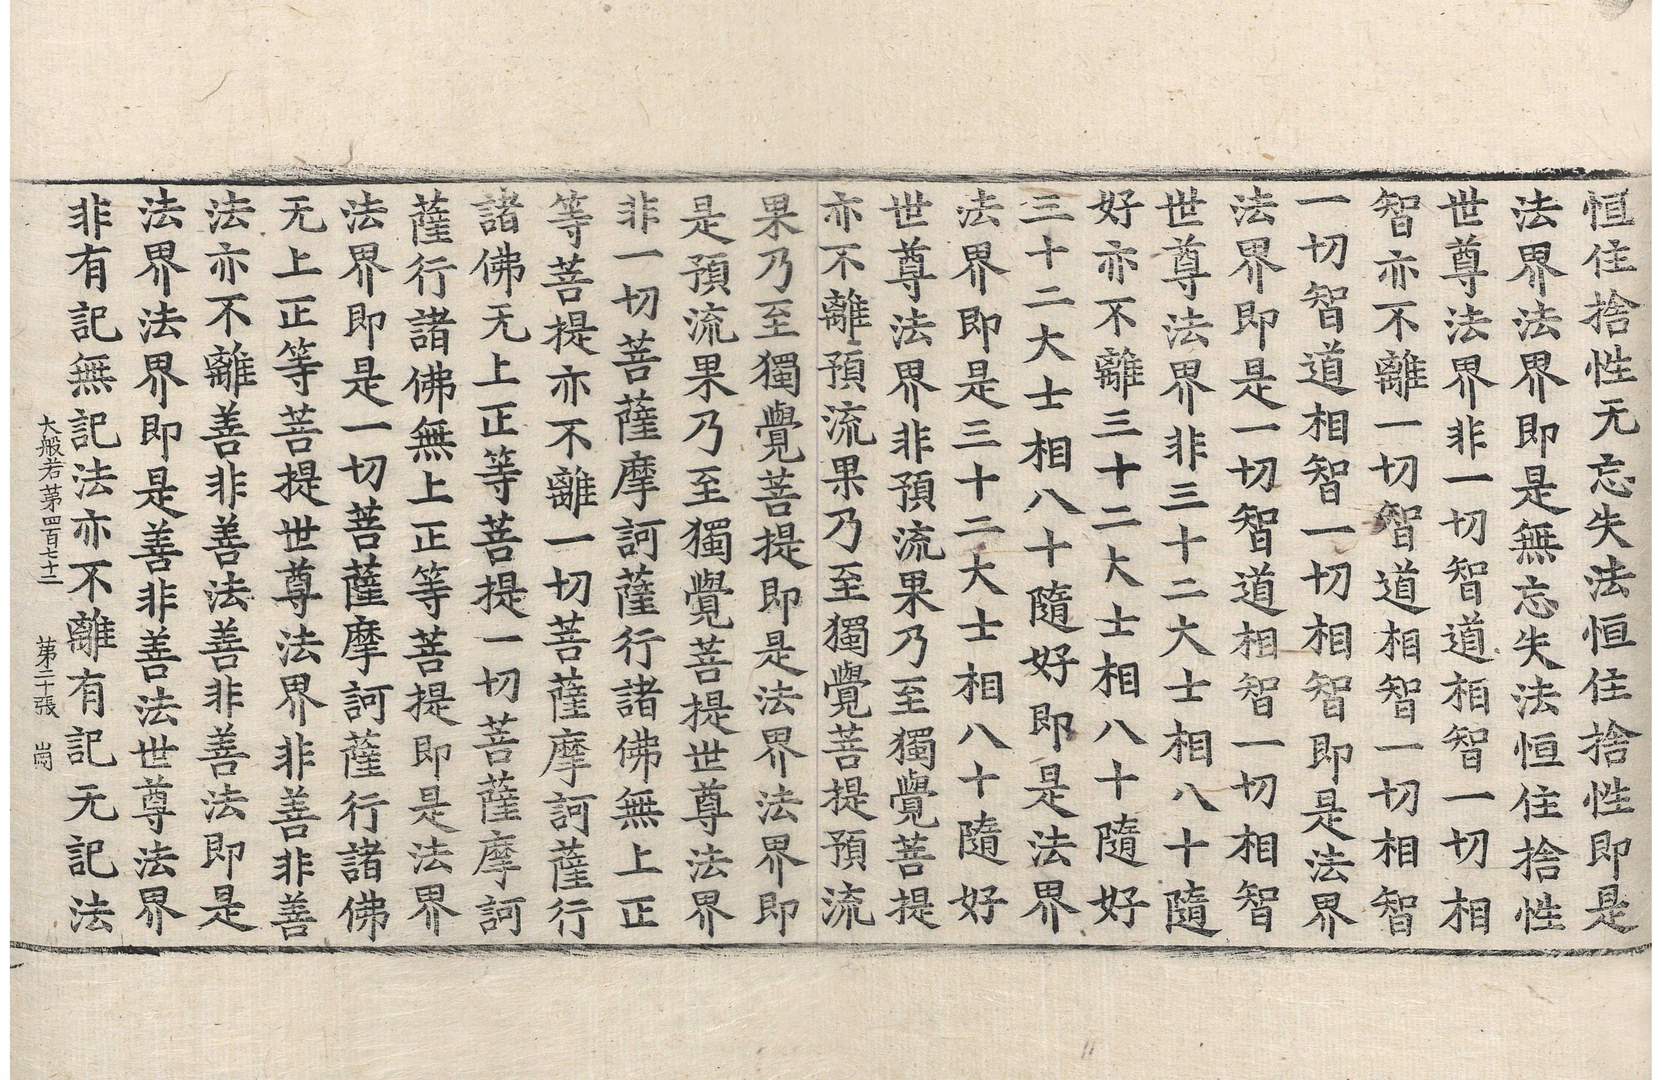 恒住捨性无忘失法恒住捨性即是
法界法界即是無忘失法恒住捨性
世尊法界非一切智道相智一切相
智亦不離一切智道相智一切相智
一切智道相智一切相智即是法界
法界即是一切智道相智一切相智
世尊法界非三十二大士相八十隨
好亦不離三十二大士相八十隨好
三十二大士相八十隨好即是法界
法界即是三十二大士相八十隨好
世尊法界非預流果乃至獨覺菩提
亦不離預流果乃至獨覺菩提預流
果乃至獨覺菩提即是法界法界即
是預流果乃至獨覺菩提世尊法界
非一切菩薩摩訶薩行諸佛無上正
等菩提亦不離一切菩薩摩訶薩行
諸佛无上正等菩提一切菩薩摩訶
薩行諸佛無上正等菩提即是法界
法界即是一切菩薩摩訶薩行諸佛
无上正等菩提世尊法界非善非善
法亦不離善非善法善非善法即是
法界法界即是善非善法世尊法界
非有記無記法亦不離有記无記法
大般若第四百七十二 第二十張 崗